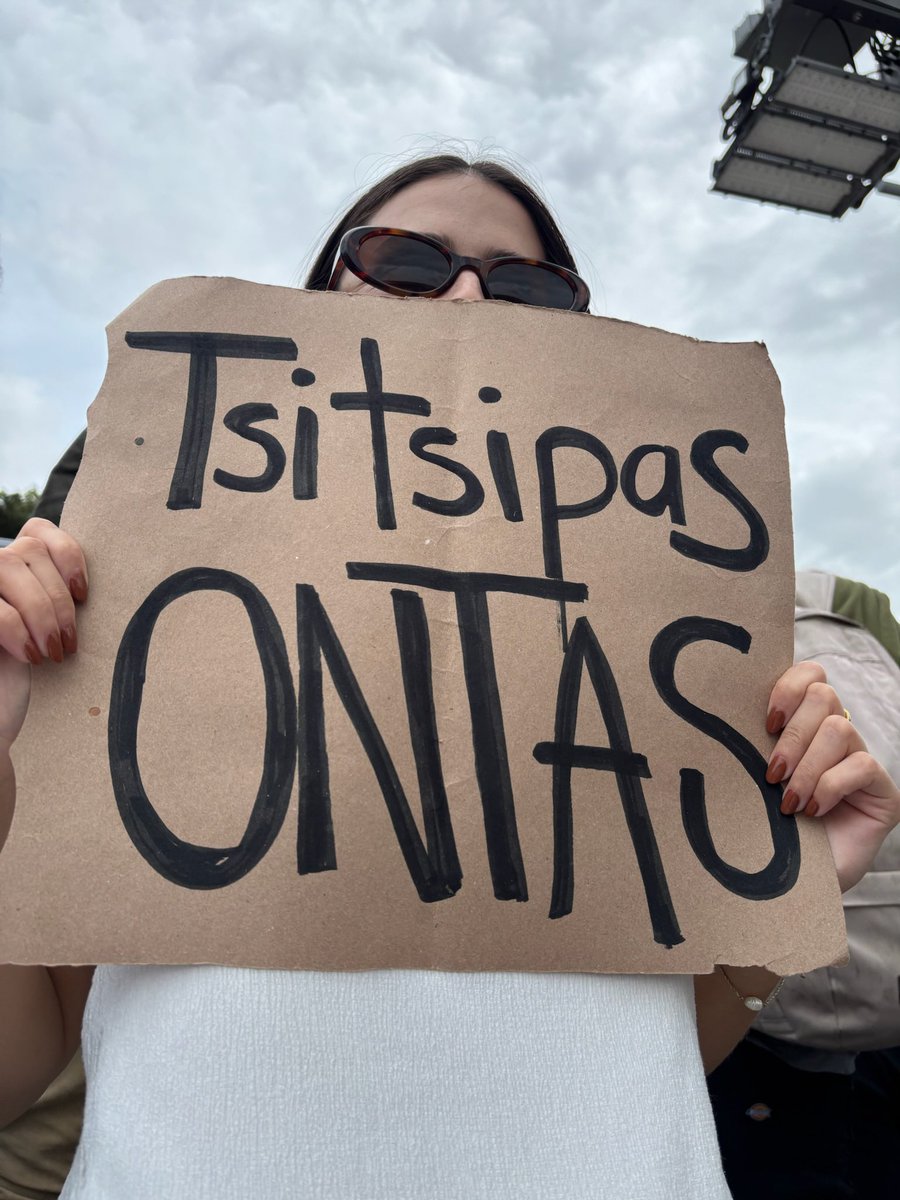 Tsitsipas
ONTAS